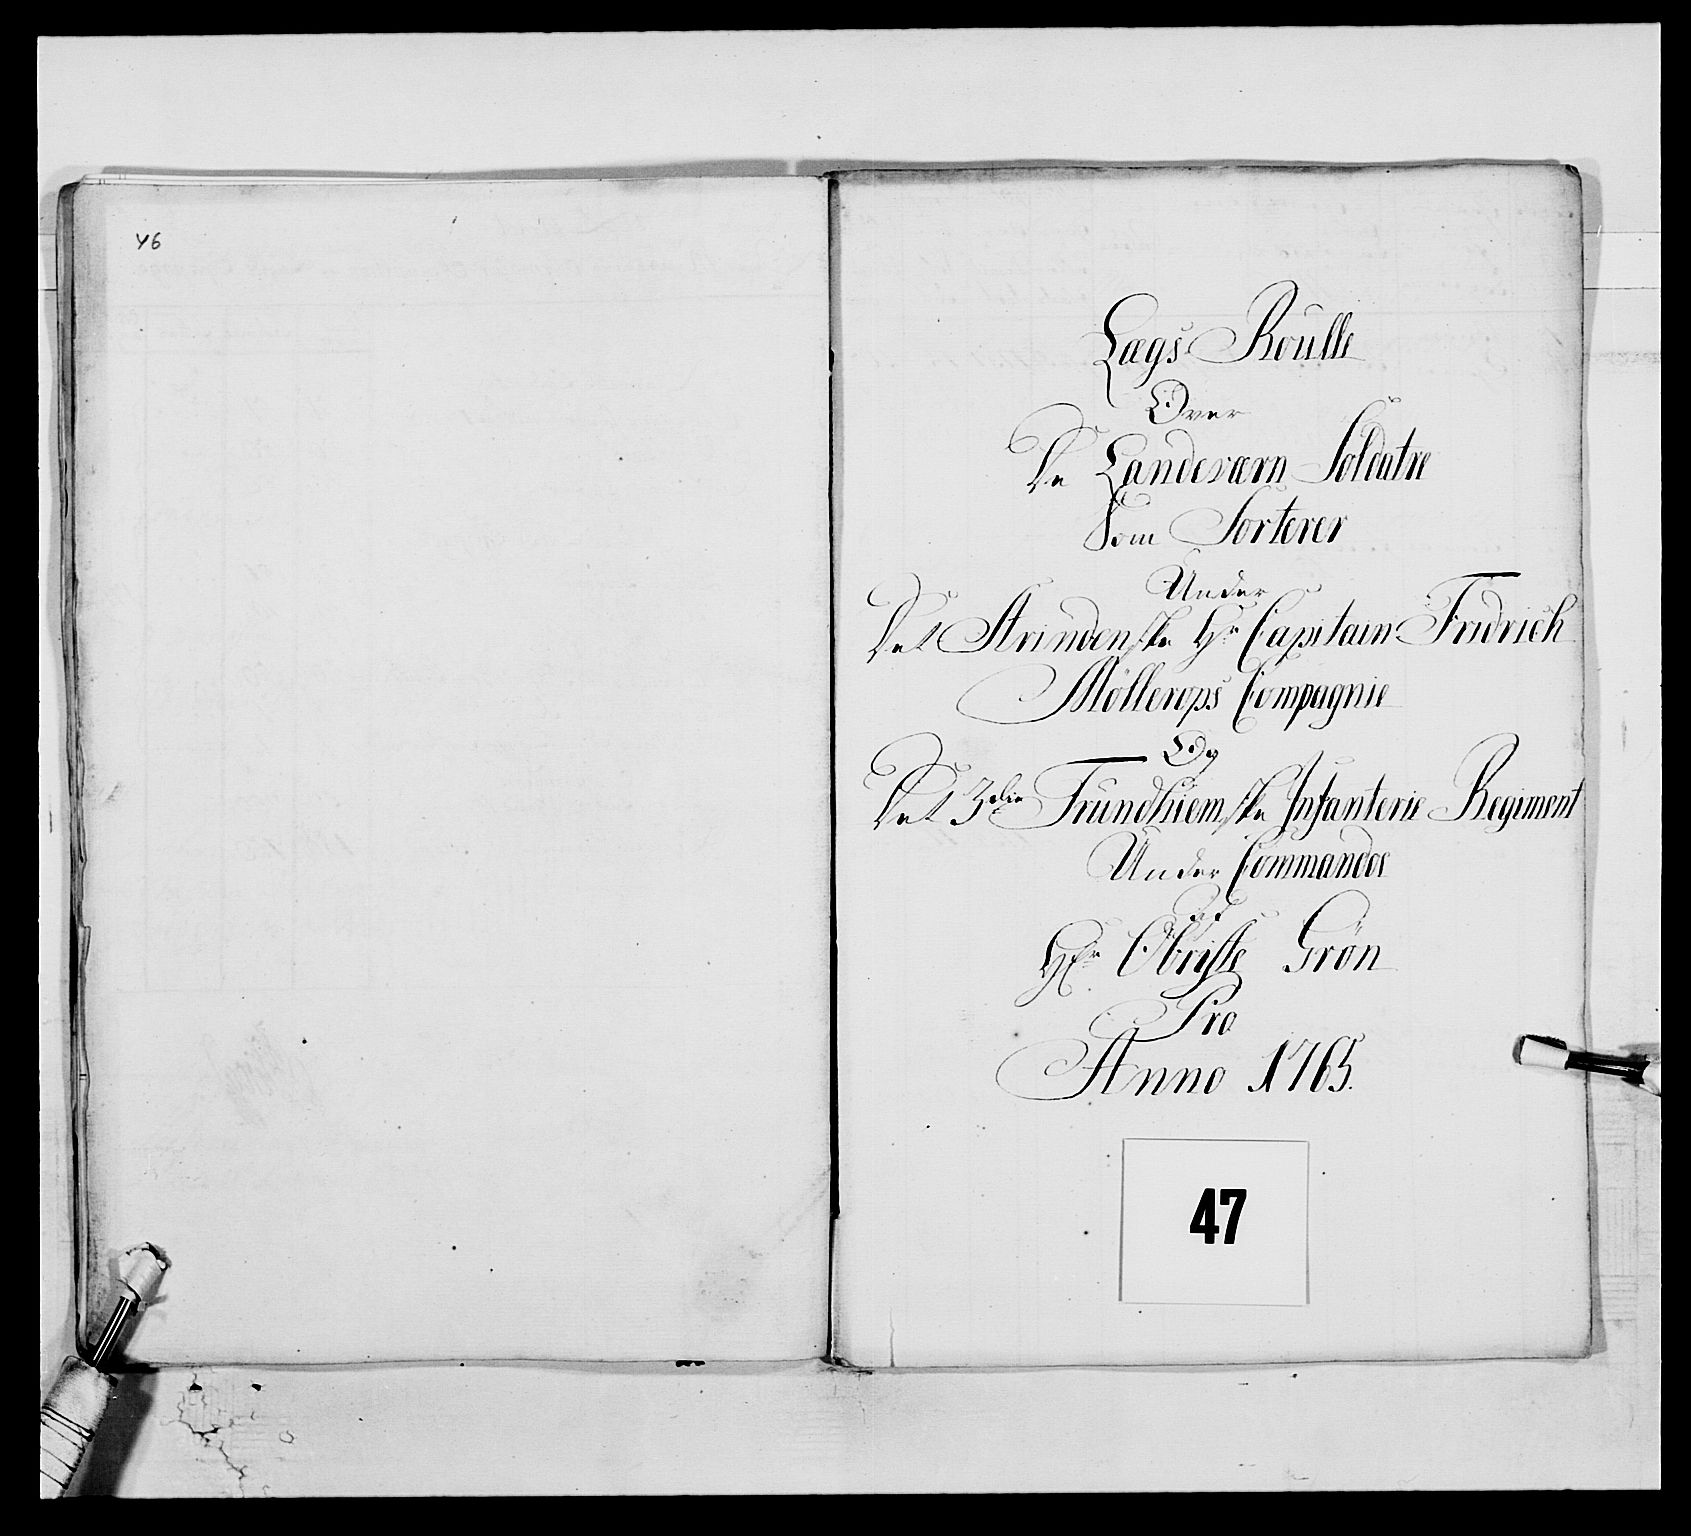 46
Lægs Roulle
Over
De Landeværn Soldatre
Som Sorterer
Under
Det Strindenske Hr Capitain Fridrich
Möllerops Compagnie
Og
Det 3die Trundhiemske Infanterie Regiment
Under Commandos
af
Hr Obriste Grön
Pro
Anno 1765.
47